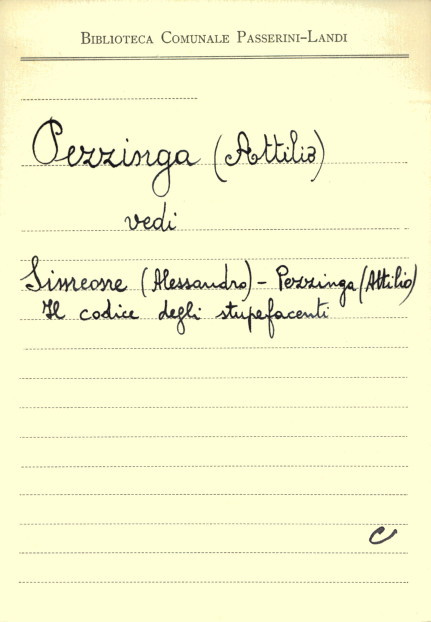 Biblioteca Comunale Passerini-Landi
Pezzinga (Attilio)
vedi
Simeone (Alessandro) - Pezzinga (Attilio)
Il codice degli stupefacenti
C